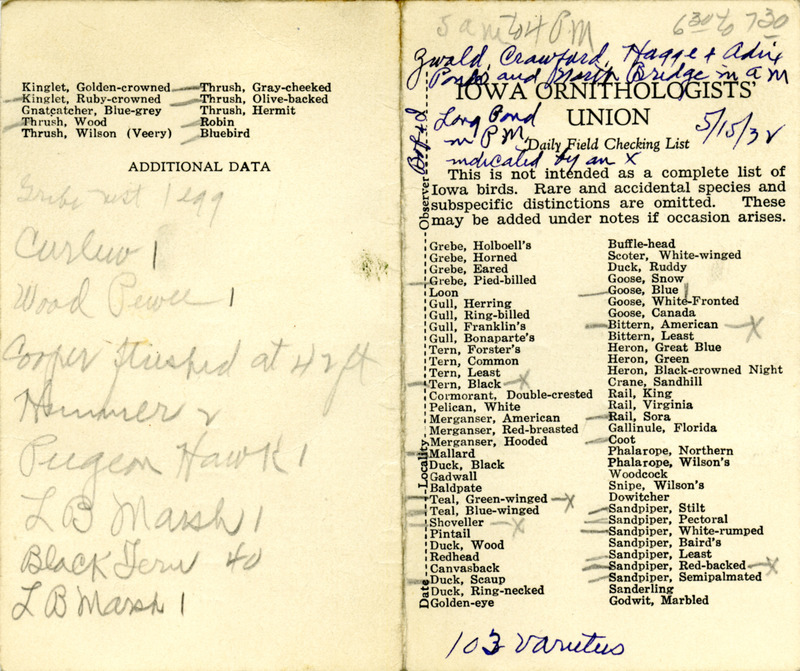 Kinglet, Golden-crowned
Kinglet, Ruby-crowned
Gnatcatcher, Blue-grey
Thrush, Wood
Thrush, Wilson (Veery)
Thrush, Gray-cheeked
Thrush, Olive-backed
Thrush, Hermit
Robin
Bluebird
ADDITIONAL DATA
Grebe nest 1 egg
Curlew 1
Wood Pewee 1
Cooper flushed at 42 ft
Hummer 2
Pugeon Hawk 1
L B Marsh 1
Black Tern 40
L B Marsh 1
5 am to 4 PM
6 30 to 7 30
Crawford, Hagge +
Ponds and North Bridge in a M
IOWA ORNITHOLOGISTS'
UNION
Long Pond
in PM
indicated by an X
5/15/32
Daily Field Checking List
This is not intended as a complete list of
Iowa birds. Rare and accidental species and
subspecific distinctions are omitted. These
may be added under notes if occasion arises.
Date
Locality
Observer
Grebe, Holboell's
Grebe, Horned
Grebe, Eared
Grebe, Pied-billed
Loon
Gull, Herring
Gull, Ring-billed
Gull, Franklin's
Gull, Bonaparte's
Tern, Forster's
Tern, Common
Tern, Least
Tern, Black X
Cormorant, Double-crested
Pelican, White
Merganser, American
Merganser, Red-breasted
Merganser, Hooded
Mallard
Duck, Black
Gadwall
Baldpate
Teal, Green-winged X
Teal, Blue-winged
Shoveller X
Pintail
Duck, Wood
Redhead
Canvasback
Duck, Scaup
Duck, Ring-necked
Golden-eye
Buffle-head
Scoter, White-winged
Duck, Ruddy
Goose, Snow
Goose, Blue 1
Goose, White-Fronted
Goose, Canada
Bittern, American X
Bittern, Least
Heron, Great Blue
Heron, Green
Heron, Black-crowned Night
Crane, Sandhill
Rail, King
Rail, Virginia
Rail, Sora
Gallinule, Florida
Coot
Phalarope, Northern
Phalarope, Wilson's
Woodcock
Snipe, Wilson's
Dowitcher
Sandpiper, Stilt
Sandpiper, Pectoral
Sandpiper, White-rumped
Sandpiper, Baird's
Sandpiper, Least
Sandpiper, Red-backed X
Sandpiper, Semipalmated
Sanderling
Godwit, Marbled
103 varieties